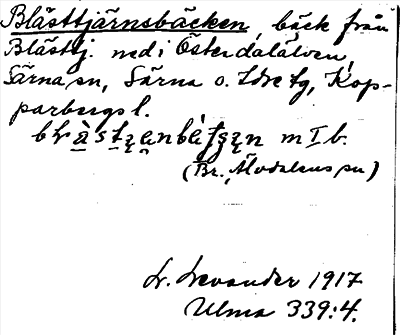 Blästtjärnsbäcken, bäck från
Blästtj. ned i Österdalälven,
Särna sn, Särna o. Idre tg, Kop-
parbergs l.
m I b.
(Br., Älvdalens sn)
L. Levander 1917
Ulma 339:4.